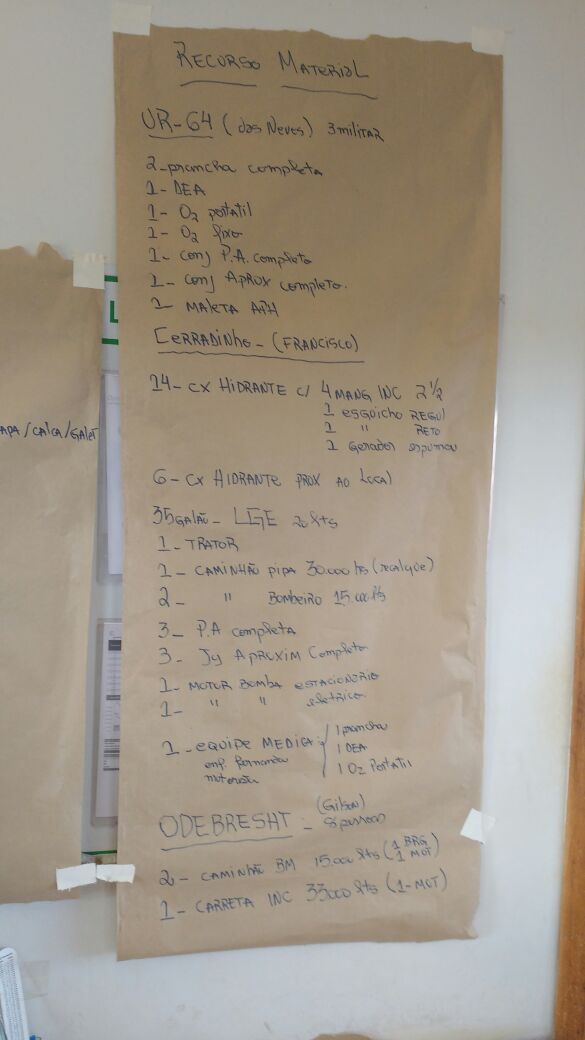 RECURSO MATERIAL
UR-64 (das Neves) 3 militar
2-prancha completa
1- DEA
1- O2 portatil
1- O2 fixo
1- conj P.A. completo
1- conj APROX completo.
1- MALETA APH
CERRADINHO - (FRANCISCO)
14- CX HIDRANTE c/ 4 MANG INC 2 1/2
1 esguicho REGUL
1 " RETO
1 Gerador espuma
6- CX HIDRANTE PROX AO LOCAL
APA/CALCA/GALET
35 GALÃO - LGE 20 lts
1- TRATOR
1- CAMINHÃO PIPA 30.000 lts (recalque)
2- " BOMBEIRO 15.000 lts
3- P.A completa
3- Jg APROXIM Completo
1- MOTOR BOMBA ESTACIONÁRIO
1- " " eletrico
1- equipe MEDICA: 1 prancha
enf. fernanda 1 DEA
motorista 1 O2 Portatil
ODEBRESHT - (Gilson)
2- CAMINHÃO BM 15.000 lts (1 BRG 1 MOT)
1- CARRETA INC 33000 lts (1-MOT)
L